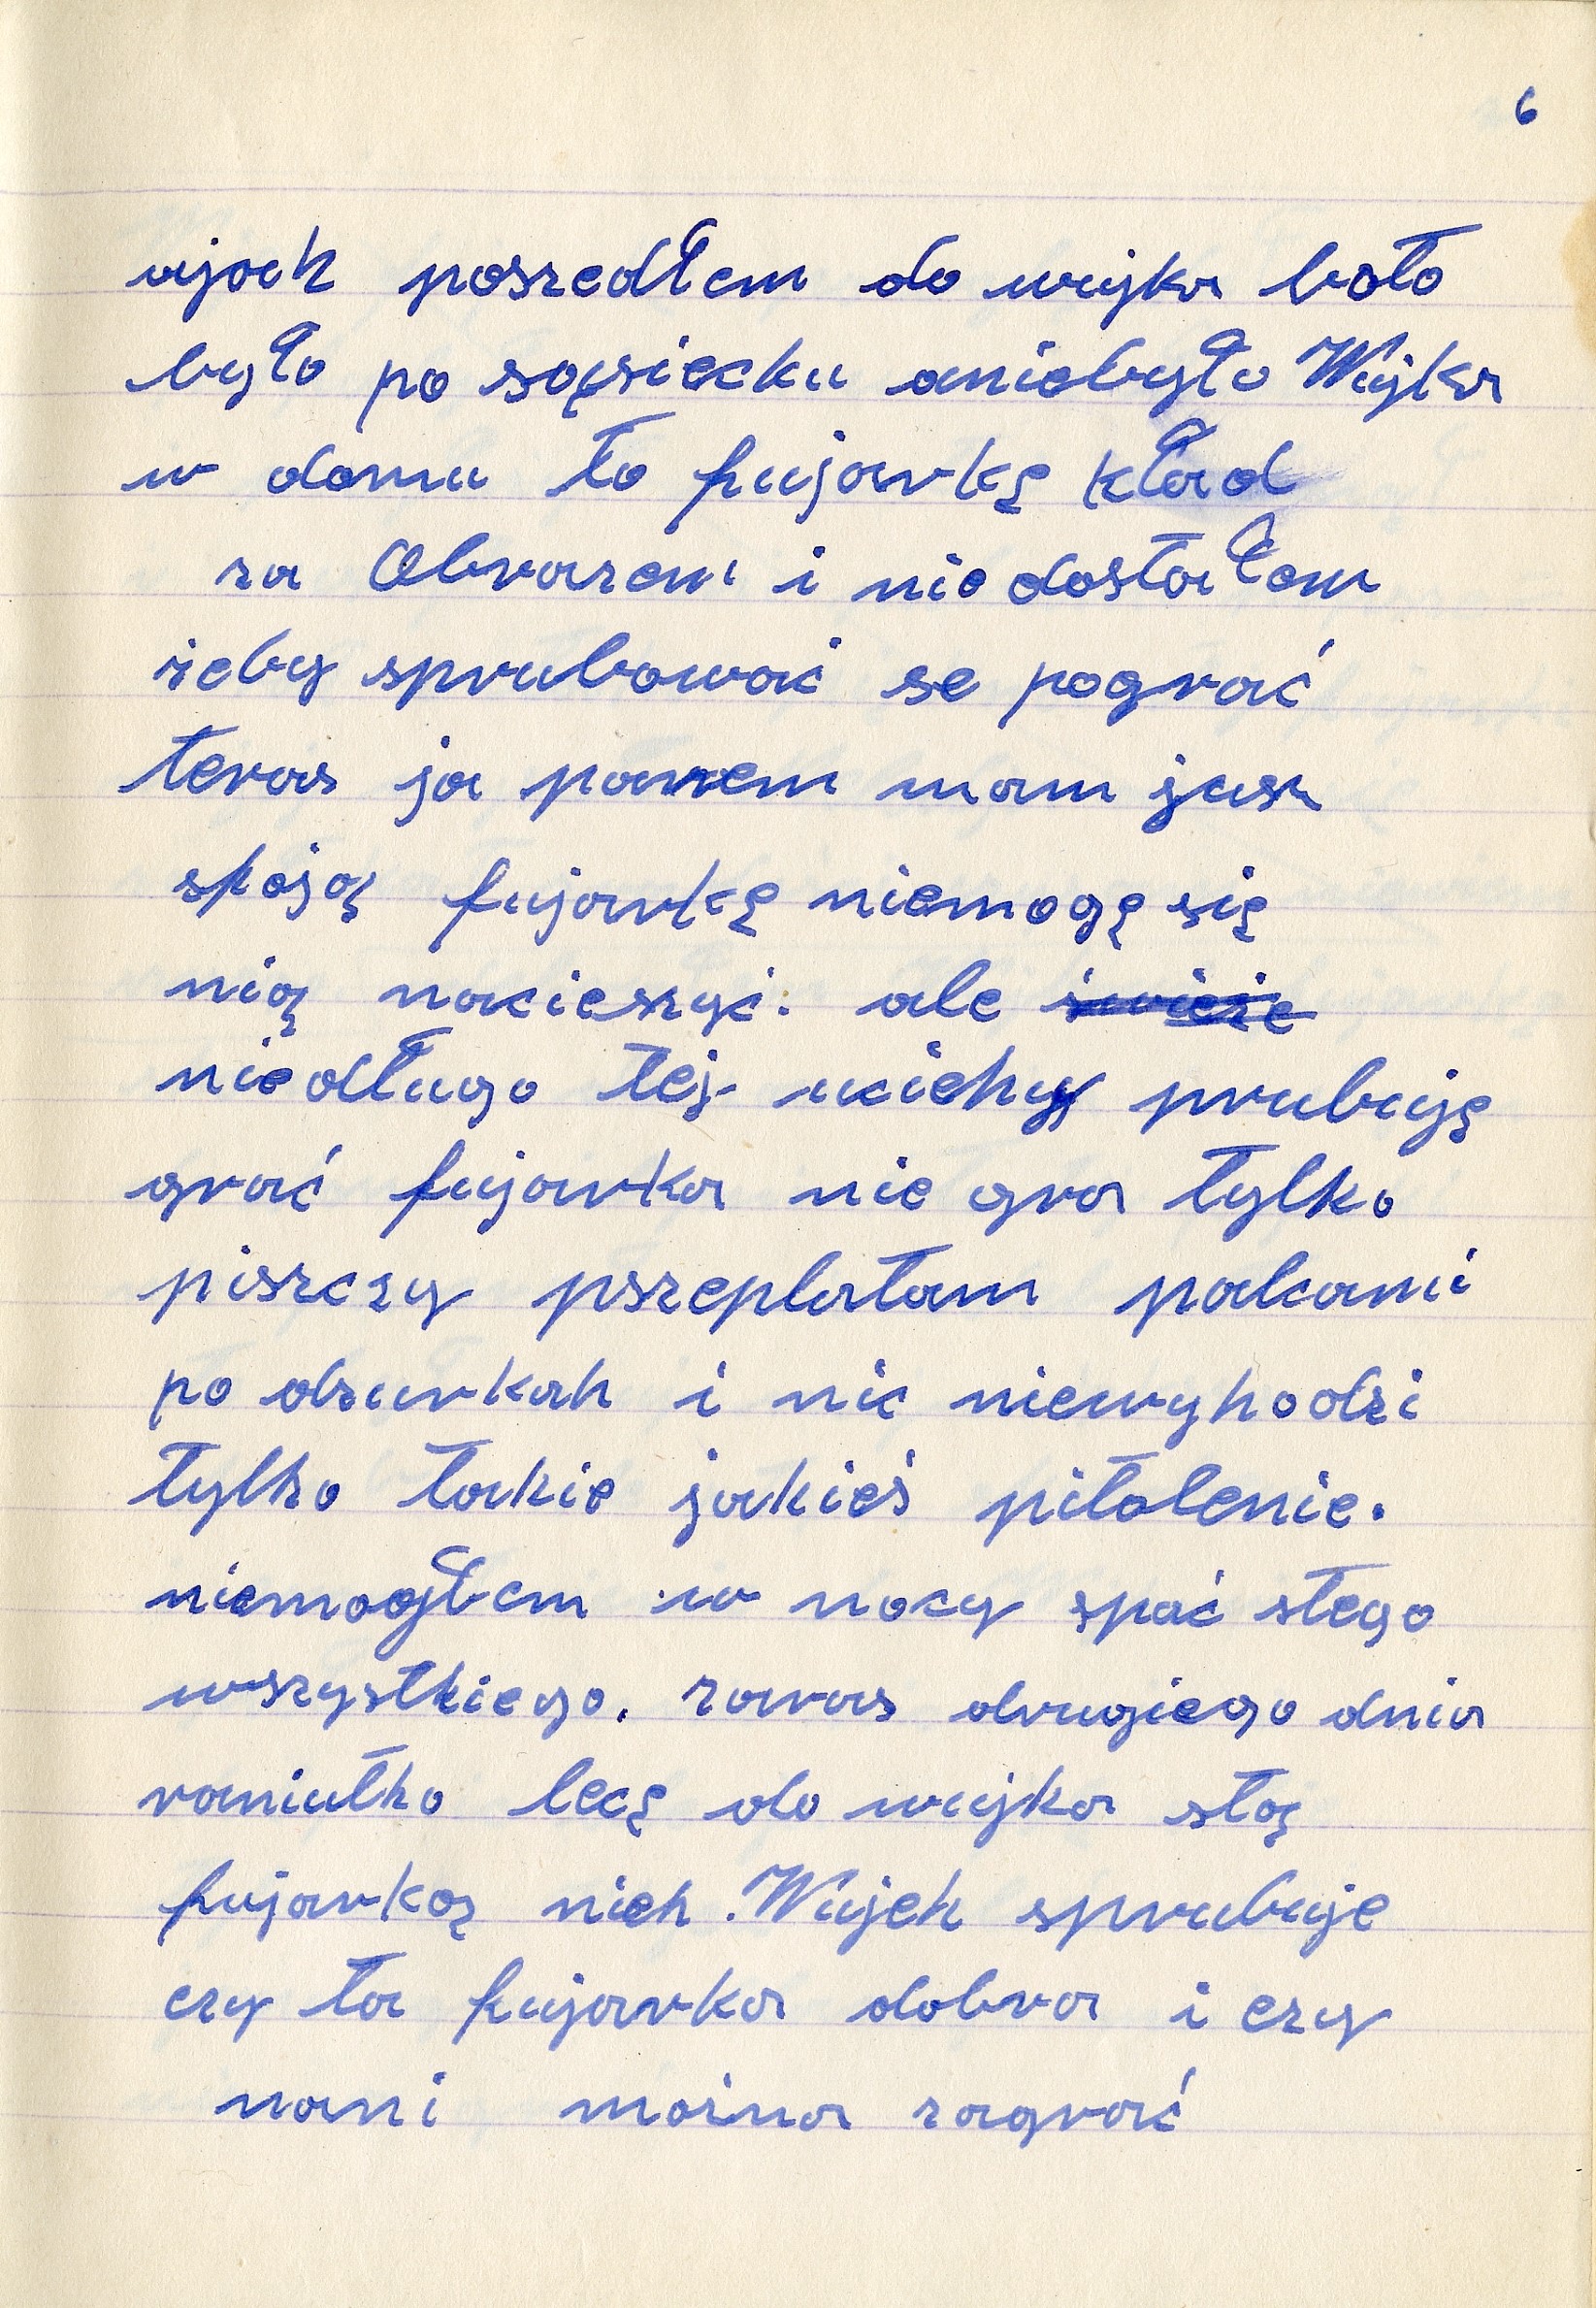 6
ajak poszedłem do wujka boto
było po sąsiecku aniebyło Wujka
w domu to fujarkę kład
za Obrazem i nie dostałem
żeby sprubować se pograć
teras ja panem mam jusz
skoją fujarkę niemogę się
nią nacieszyć. ale świeże
nie długo tej uciehy prubuję
grać fujarka nie gra tylko
piszczy pszeplatam palcami
po dzurkah i nic niewyhodzi
tylko takie jakieś pitolenie.
niemogłem w nocy spać stego
wszystkiego. zaras drugiego dnia
raniutko lecę do wujka stą
fujarką nieh Wujek sprubuje
czy ta fujarka dobra i czy
nani można zagrać